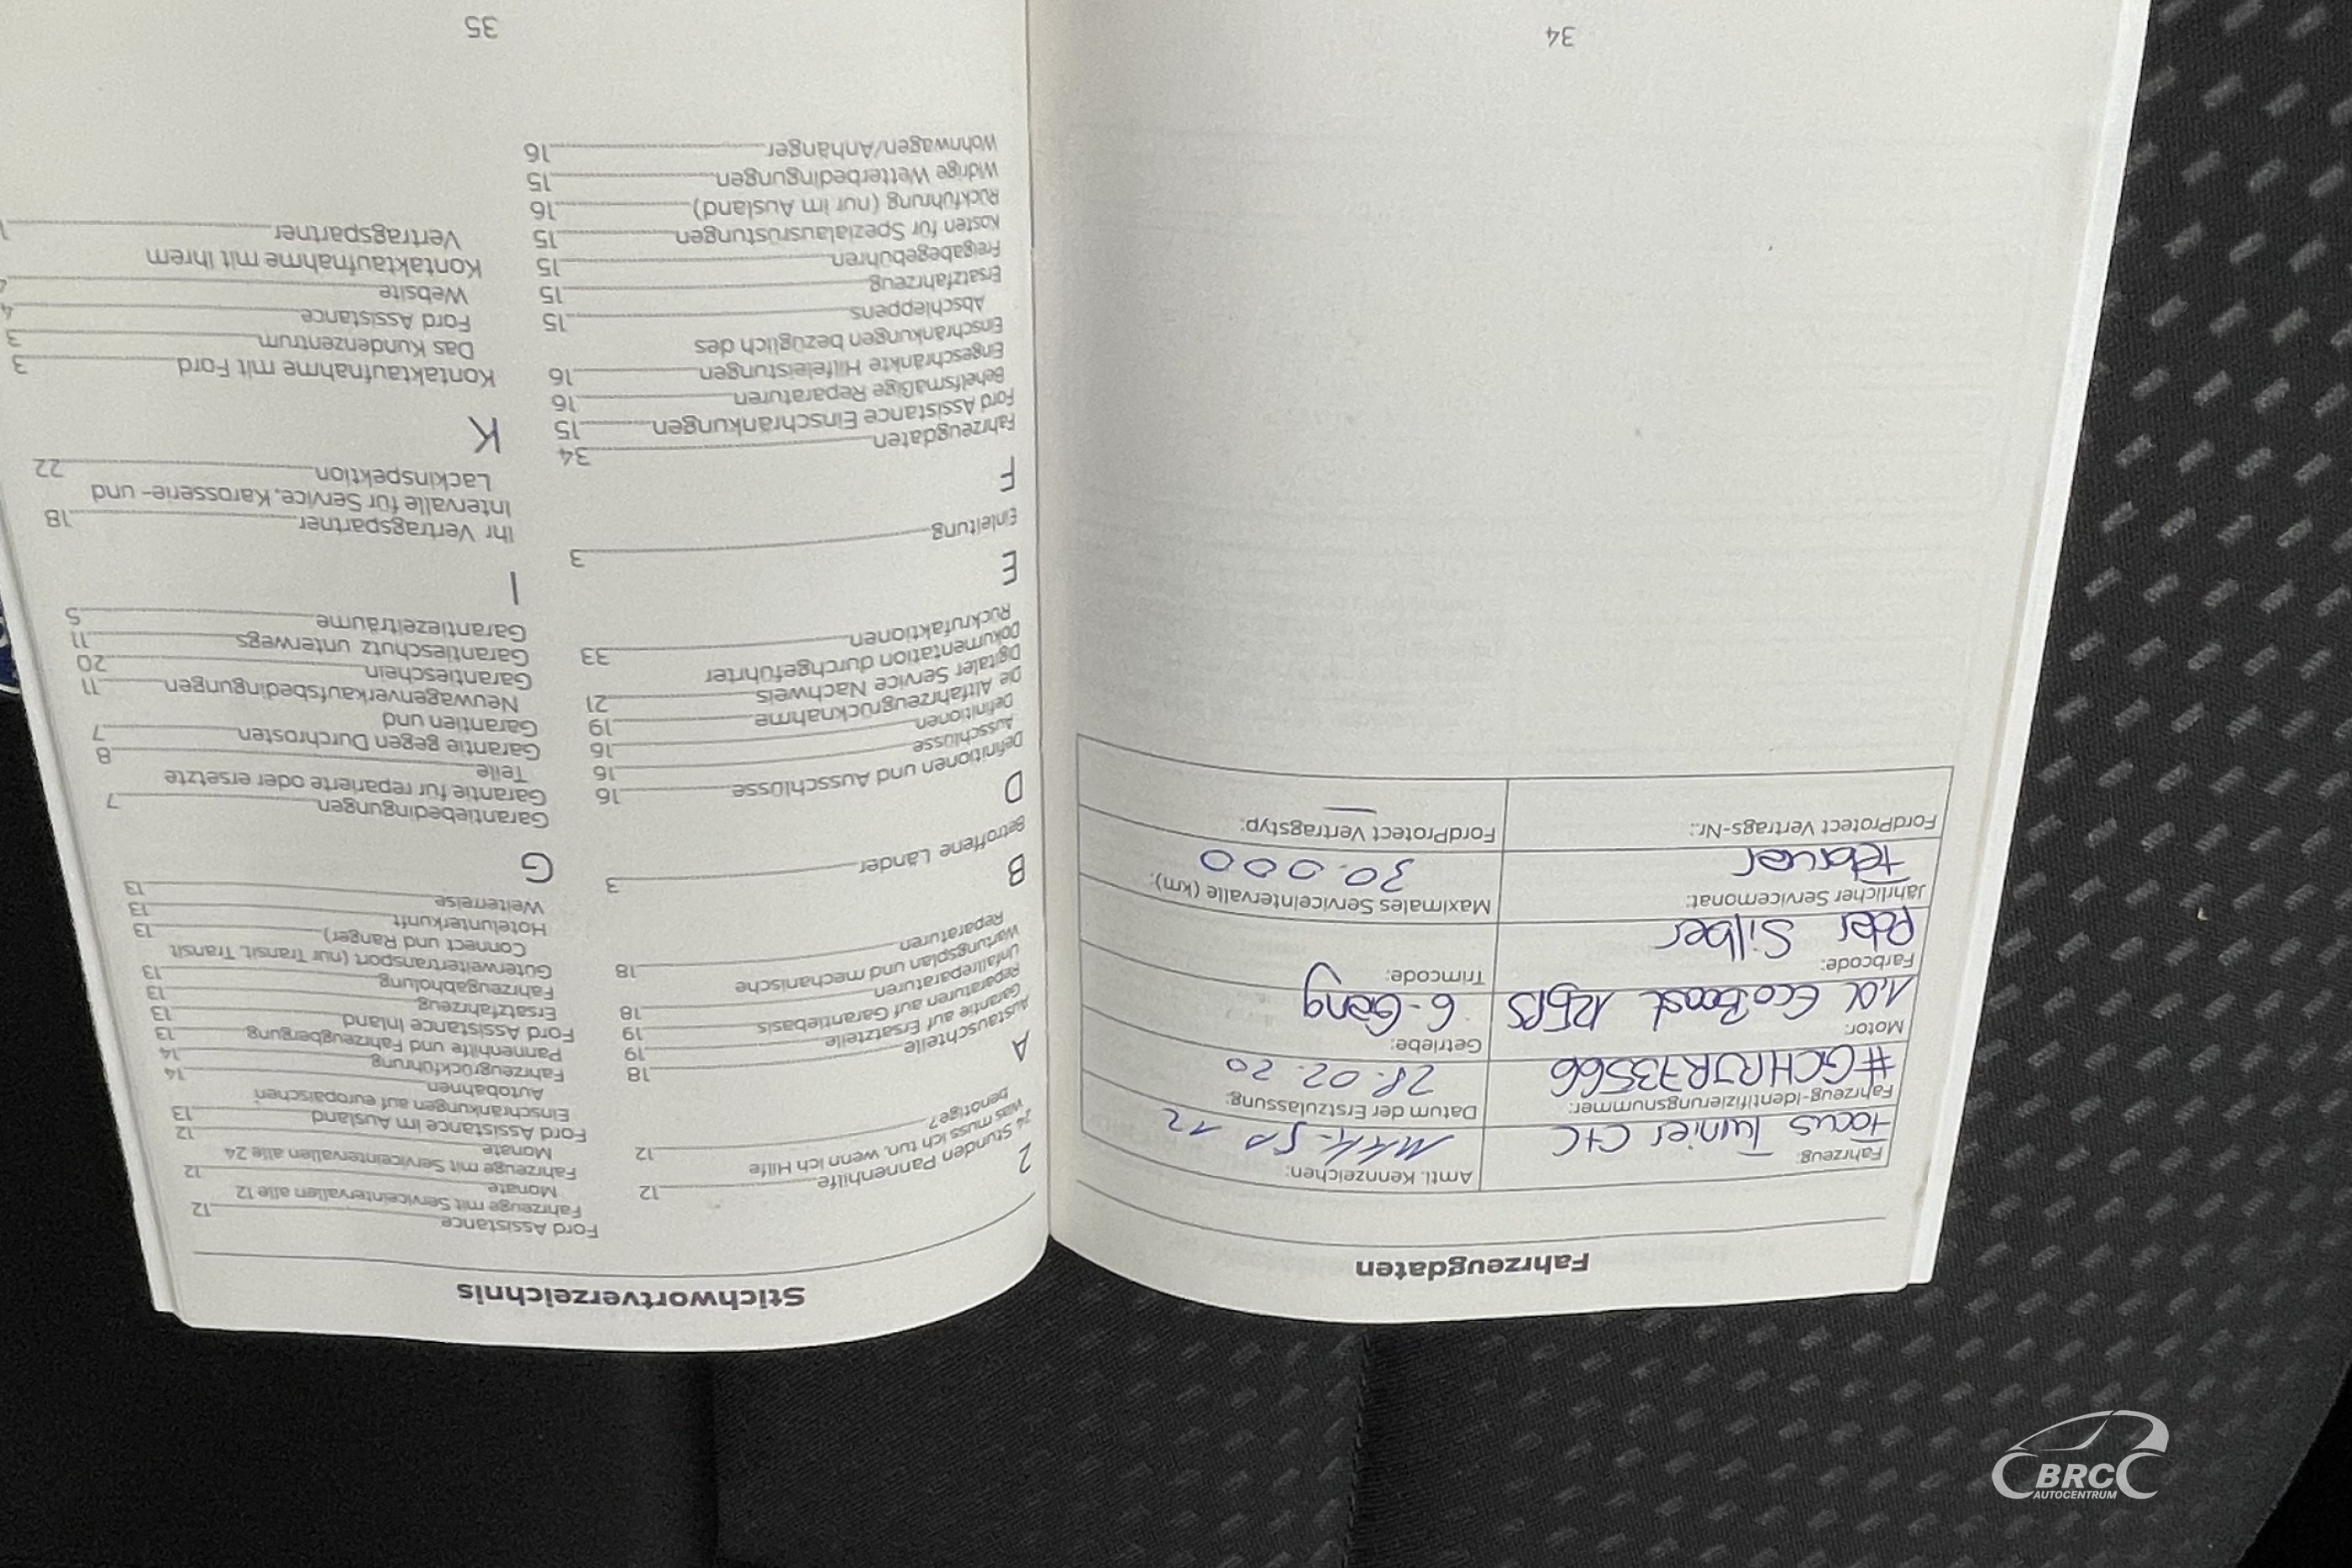 Fahrzeugdaten
Fahrzeug:
Focus Turnier C+C
Amtl. Kennzeichen:
Fahrzeug-Identifizierungsnummer:
Datum der Erstzulassung:
28.02.20
Motor:
1,0l EcoBoost 125PS
Getriebe:
6-Gang
Farbcode:
Polar Silber
Trimcode:
Jährlicher Servicemonat:
Februar
Maximales Serviceintervalle (km):
30.000
FordProtect Vertrags-Nr.:
FordProtect Vertragstyp:
—
34
Stichwortverzeichnis
2
24 Stunden Pannenhilfe 12
Was muss ich tun, wenn ich Hilfe
benötige? 12
A
Austauschteile 18
Garantie auf Ersatzteile 19
Reparaturen auf Garantiebasis 19
Unfallreparaturen 18
Wartungsplan und mechanische
Reparaturen 18
B
Betroffene Länder 3
D
Definitionen und Ausschlüsse 16
Ausschlüsse 16
Definitionen 16
Die Altfahrzeugrücknahme 19
Digitaler Service Nachweis 21
Dokumentation durchgeführter
Rückrufaktionen 33
E
Einleitung 3
F
Fahrzeugdaten 34
Ford Assistance Einschränkungen 15
Behelfsmäßige Reparaturen 16
Eingeschränkte Hilfeleistungen 16
Einschränkungen bezüglich des
Abschleppens 15
Ersatzfahrzeug 15
Freigabegebühren 15
Kosten für Spezialausrüstungen 15
Rückführung (nur im Ausland) 16
Widrige Wetterbedingungen 15
Wohnwagen/Anhänger 16
Ford Assistance 12
Fahrzeuge mit Serviceintervallen alle 12
Monate 12
Fahrzeuge mit Serviceintervallen alle 24
Monate 12
Ford Assistance im Ausland 13
Einschränkungen auf europäischen
Autobahnen 14
Fahrzeugrückführung 14
Pannenhilfe und Fahrzeugbergung 13
Ford Assistance Inland 13
Ersatzfahrzeug 13
Fahrzeugabholung 13
Güterweitertransport (nur Transit, Transit
Connect und Ranger) 13
Hotelunterkunft 13
Weiterreise 13
G
Garantiebedingungen 7
Garantie für reparierte oder ersetzte
Teile 8
Garantie gegen Durchrosten 7
Garantien und
Neuwagenverkaufsbedingungen 11
Garantieschein 20
Garantieschutz unterwegs 11
Garantiezeiträume 5
I
Ihr Vertragspartner 18
Intervalle für Service, Karosserie- und
Lackinspektion 22
K
Kontaktaufnahme mit Ford 3
Das Kundenzentrum 3
Ford Assistance 4
Website
Kontaktaufnahme mit Ihrem
Vertragspartner
35
BRC
AUTOCENTRUM